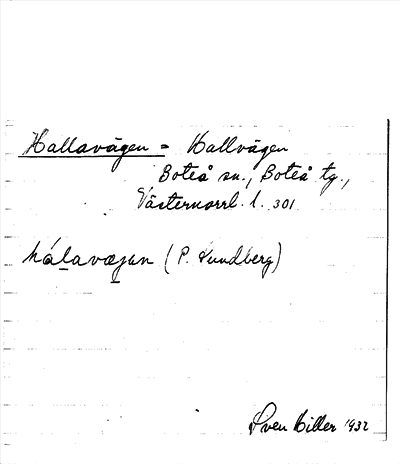 Hallavägen = Hallvägen
Boteå sn., Boteå tg.,
Västernorrl. l. 301
hál̲avæg̲an (P. Sundberg)
Sven Hiller 1932